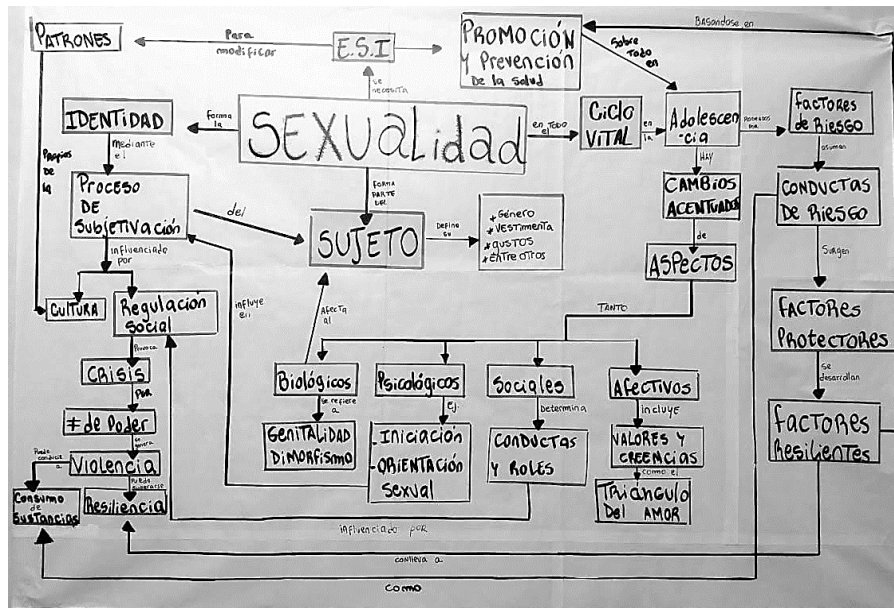 PATRONES
Para
modificar
E.S.I
PROMOCIÓN
y Prevención
De la salud
BASándose en
Sobre
Todo
en
se
necesita
IDENTIDAD
Forma
la
SEXUalidad
en TODO
el
Ciclo
VITAL
en
la
Adolescen
-cia
FACTORES
de Riesgo
asumen
mediante
el
Propios
de la
Proceso
DE
Subjetivación
del
FORMA
PARTE
DEL
SUJETO
Define
su
* Género
* VESTIMENTA
* GUSTOS
* ENTRE OTROS
HAY
CAMBIOS
ACENTUADOS
de
ASPECTOS
CONDUCTAS
DE RIESGO
Surgen
influenciado
por
CULTURA
Regulación
Social
influye
en
Afecta
al
TANTO
FACTORES
PROTECTORES
se
desarrollan
Provoca
CRISIS
POR
≠ de Poder
se
genera
Violencia
Puede
conducir
a
Consumo
de
SUSTANCIAS
Resiliencia
Biológicos
se refiere
a
GENITALIDAD
DIMORFISMO
Psicológicos
Ej.
-Iniciación
-ORIENTACIÓN
Sexual
Sociales
Determina
CONDUCTAS
Y ROLES
Afectivos
incluye
VALORES Y
CREENCIAS
como el
TRIÁNGULO
Del AMOR
FACTORES
Resilientes
influenciado por
conlleva a
como